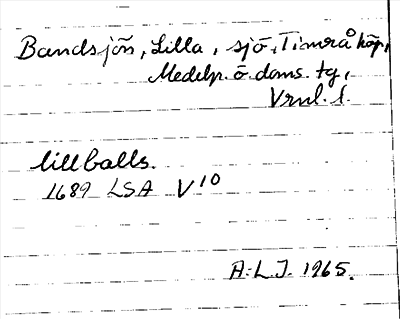 Bandsjön, Lilla, sjö, Timrå köp,
Medelp. ö. doms. tg,
Vrnl. l.
lillballs.
1689 LSA V10
A.L.J. 1965.